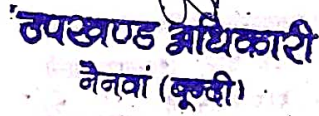 उपखण्ड अधिकारी
नेनवां (बून्दी)